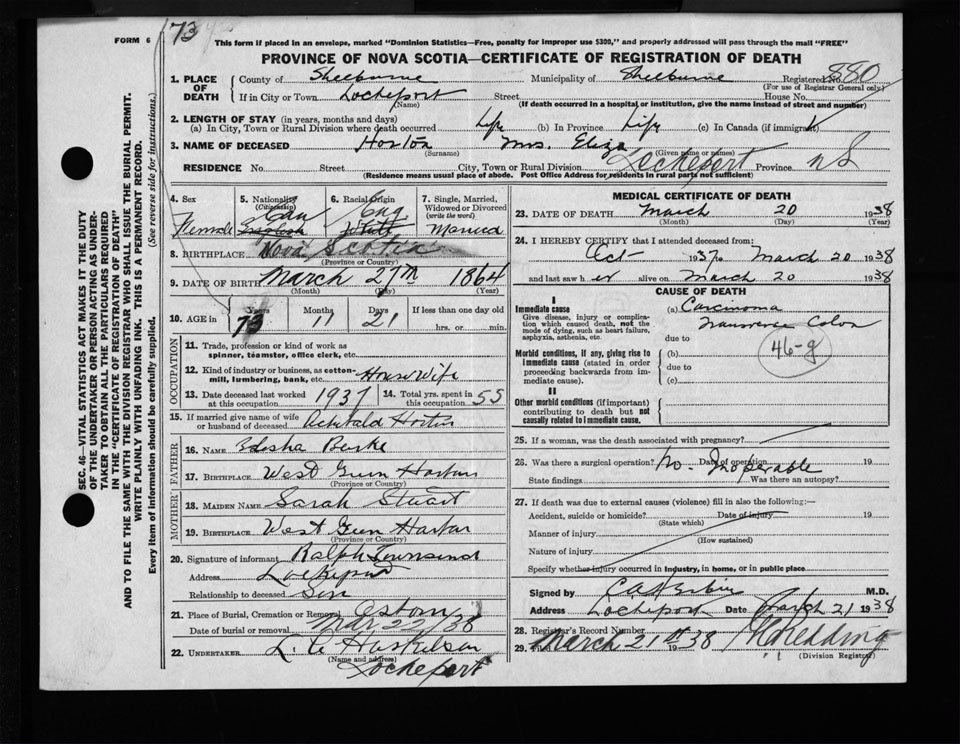 FORM 6
73
This form if placed in an envelope, marked "Dominion Statistics—Free, penalty for improper use $300," and properly addressed will pass through the mail "FREE"
PROVINCE OF NOVA SCOTIA—CERTIFICATE OF REGISTRATION OF DEATH
SEC. 46—VITAL STATISTICS ACT MAKES IT THE DUTY
OF THE UNDERTAKER OR PERSON ACTING AS UNDER-
TAKER TO OBTAIN ALL THE PARTICULARS REQUIRED
IN THE "CERTIFICATE OF REGISTRATION OF DEATH"
AND TO FILE THE SAME WITH THE DIVISION REGISTRAR WHO SHALL ISSUE THE BURIAL PERMIT.
WRITE PLAINLY WITH UNFADING INK. THIS IS A PERMANENT RECORD.
Every item of information should be carefully supplied. (See reverse side for instructions.)
1. PLACE OF DEATH County of Shelburne Municipality of Shelburne Registered No. 880
(For use of Registrar General only)
If in City or Town Lockeport Street House No.
(Name) (If death occurred in a hospital or institution, give the name instead of street and number)
2. LENGTH OF STAY (in years, months and days)
(a) In City, Town or Rural Division where death occurred Life (b) In Province Life (c) In Canada (if immigrant)
3. NAME OF DECEASED Horton Mrs. Eliza
(Surname) (Given name or names)
RESIDENCE No. Street City, Town or Rural Division Lockeport Province N S
(Residence means usual place of abode. Post Office Address for residents in rural parts not sufficient)
4. Sex Female
5. Nationality (Citizenship) Can
6. Racial Origin Eng
7. Single, Married, Widowed or Divorced (write the word) Married
8. BIRTHPLACE Nova Scotia
(Province or Country)
9. DATE OF BIRTH March 27th 1864
(Month) (Day) (Year)
10. AGE in Years 73 Months 11 Days 21 If less than one day old
hrs. or min.
OCCUPATION
11. Trade, profession or kind of work as
spinner, teamster, office clerk, etc.
12. Kind of industry or business, as cotton-
mill, lumbering, bank, etc. Housewife
13. Date deceased last worked at this occupation 1937 14. Total yrs. spent in this occupation 55
15. If married give name of wife
or husband of deceased Archibald Horton
FATHER
16. NAME
17. BIRTHPLACE West Green Harbour
(Province or Country)
MOTHER
18. MAIDEN NAME Sarah Stuart
19. BIRTHPLACE West Green Harbor
(Province or Country)
20. Signature of informant Ralph Townsend
Address Lockeport
Relationship to deceased Son
21. Place of Burial, Cremation or Removal
Date of burial or removal Mar 22/38
22. UNDERTAKER
(Name and address)
Lockeport
MEDICAL CERTIFICATE OF DEATH
23. DATE OF DEATH March 20 1938
(Month) (Day)
24. I HEREBY CERTIFY that I attended deceased from:
Oct 1937 to March 20 1938
and last saw her alive on March 20 1938
CAUSE OF DEATH
I
Immediate cause
Give disease, injury or complica-
tion which caused death, not the
mode of dying, such as heart failure,
asphyxia, asthenia, etc.
(a) Carcinoma
Transverse Colon
due to
Morbid conditions, if any, giving rise to
immediate cause (stated in order
proceeding backwards from im-
mediate cause).
(b)
due to
(c)
46-g
II
Other morbid conditions (if important)
contributing to death but not
causally related to immediate cause.
25. If a woman, was the death associated with pregnancy?
26. Was there a surgical operation? No. Inoperable Date of operation 19
State findings Was there an autopsy?
27. If death was due to external causes (violence) fill in also the following:—
Accident, suicide or homicide? Date of injury 19
(State which)
Manner of injury
(How sustained)
Nature of injury
Specify whether injury occurred in industry, in home, or in public place
Signed by M.D.
Address Lockeport Date March 21 1938
28. Registrar's Record Number
29. Filed March 21st 1938
(Division Registrar)